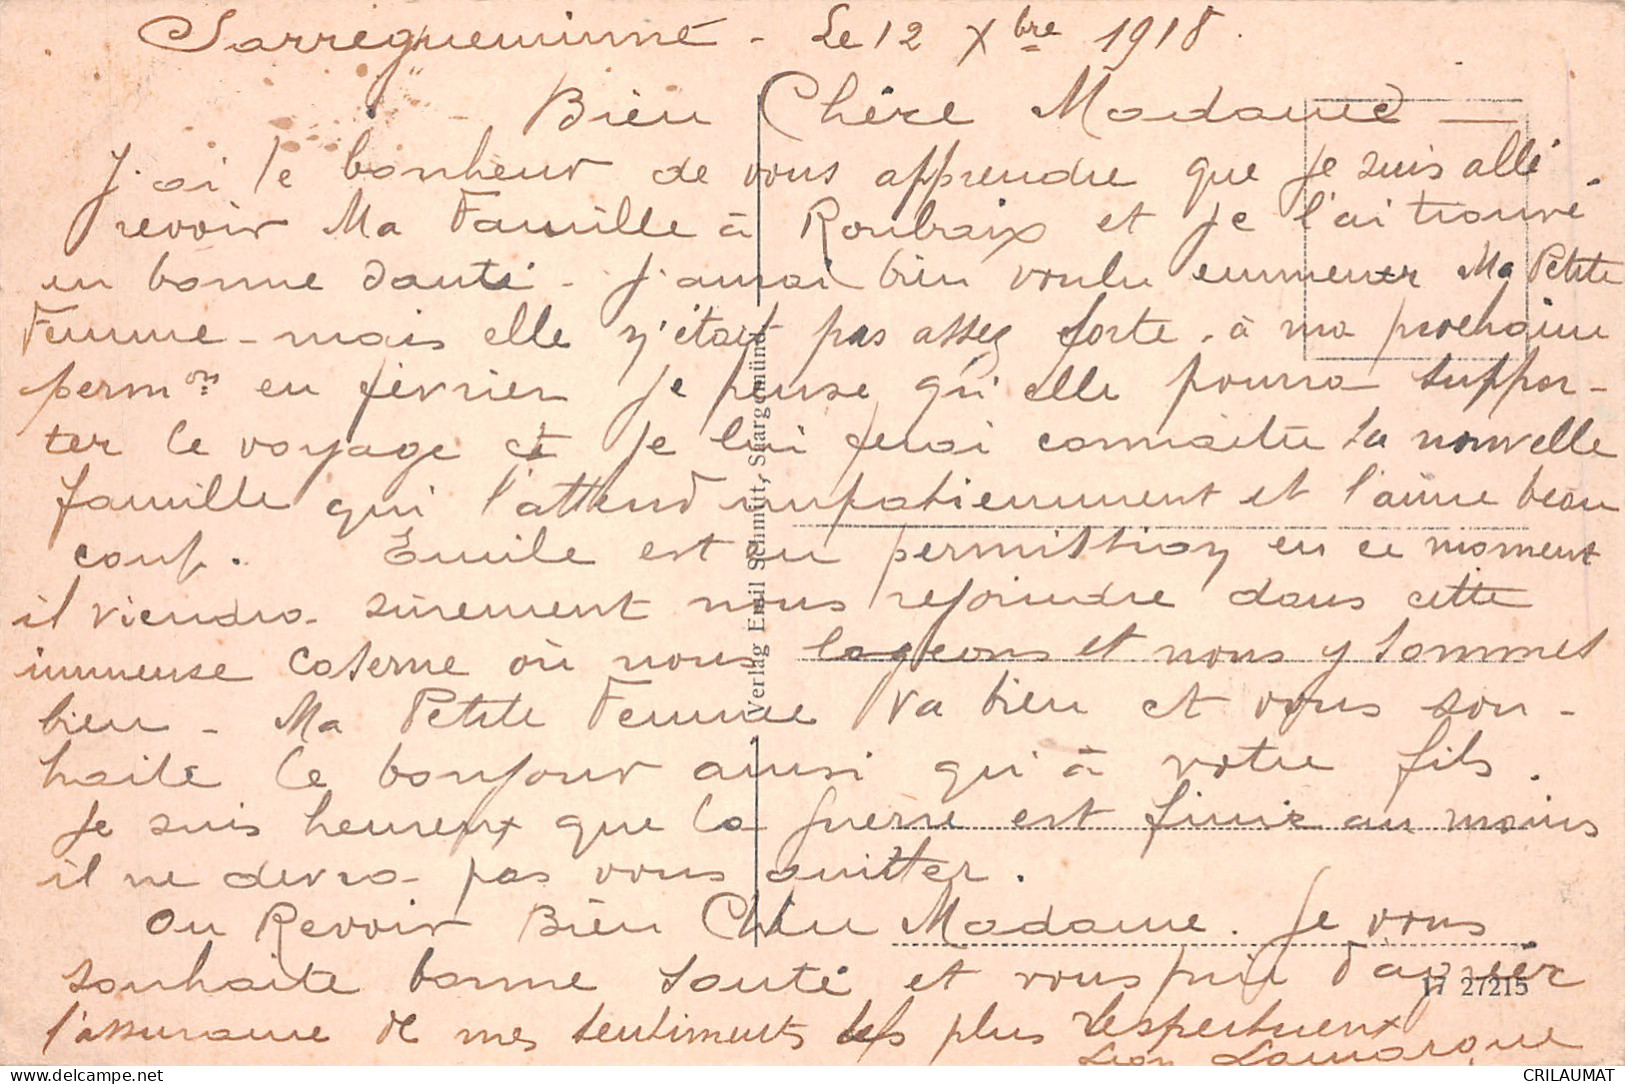 Sarregueminne - Le 12 Xbre 1918.
Bien Chère Madame
J'ai le bonheur de vous apprendre que je suis allé
revoir Ma Famille à Roubaix et je l'ai trouvé
en bonne santé - J'aurai bien voulu emmener Ma Petite
Femme - mais elle n'était pas assez forte. à ma prochaine
permon en février je pense qu'elle pourra suppor-
ter le voyage et je lui ferai connaitre sa nouvelle
famille qui l'attend impatiemment et l'aime beau
coup. Emile est en permission en ce moment
il viendra surement nous rejoindre dans cette
immense caserne où nous logeons et nous y sommes
bien - Ma Petite Femme va bien et vous sou-
haite le bonjour ainsi qu'à votre fils.
Je suis heureux que la guerre est finie au moins
il ne devra pas vous quitter.
Au Revoir Bien Chère Madame. Je vous
souhaite bonne santé et vous prie d'agréer
l'assurance de mes sentiments les plus respectueux
Léon Lamarque
Verlag Emil Schmitt, Saargemünd.
17 27215
CRILAUMAT